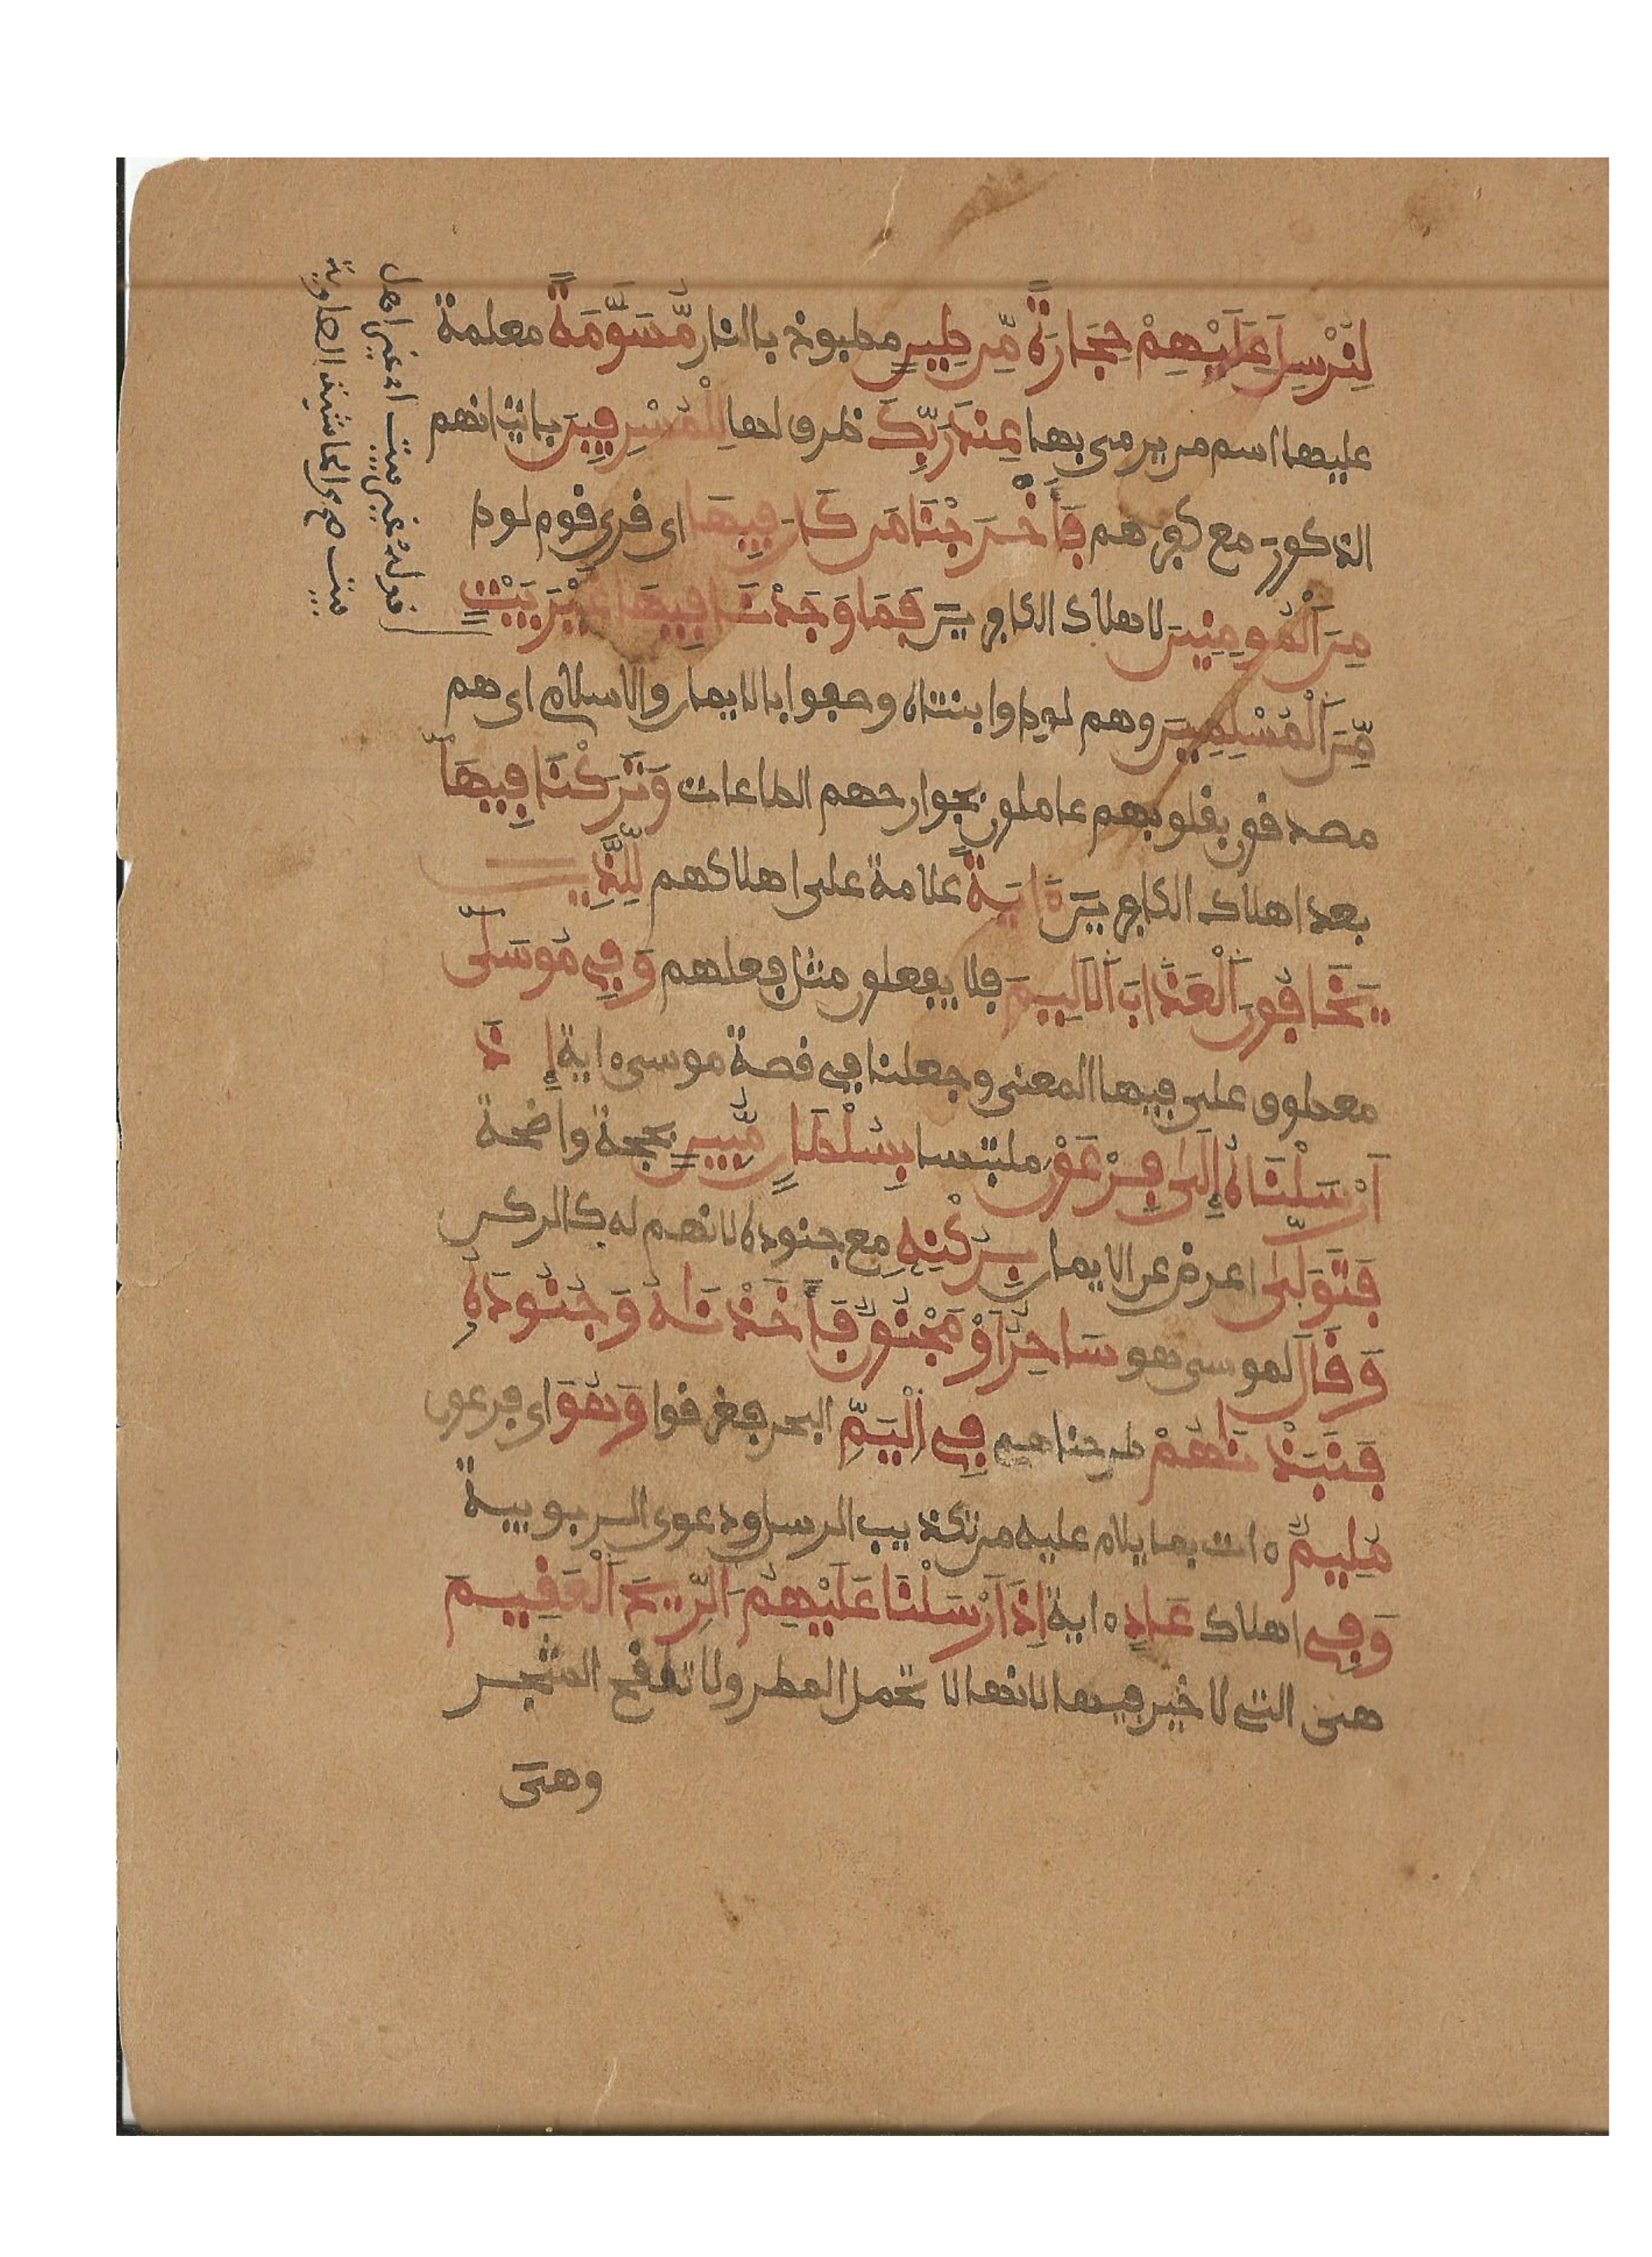 لِنُرْسِلَ عَلَيْهِمْ حِجَارَةً مِّن طِينٍ مطبوخ بالنار مُّسَوَّمَةً معلمة
عليها اسم من يرمى بها عِندَ رَبِّكَ ظرف لها لِلْمُسْرِفِينَ باتيانهم
الذكور مع كفرهم فَأَخْرَجْنَا مَن كَانَ فِيهَا اى قرى قوم لوط
مِنَ ٱلْمُومِنِينَ لاهلاك الكافرين فَمَا وَجَدْنَا فِيهَا غَيْرَ بَيْتٍ
مِّنَ ٱلْمُسْلِمِينَ وهم لوط وابنتاه وصفوا بالايمان والاسلام اى هم
مصدقون بقلوبهم عاملون بجوارحهم الطاعات وَتَرَكْنَا فِيهَا
بعد اهلاك الكافرين ءَايَةً علامة على اهلاكهم لِّلَّذِينَ
يَخَافُونَ ٱلْعَذَابَ ٱلَالِيمَ فلا يفعلون مثل فعلهم وَفِى مُوسَىٰ
معطوف على فيها المعنى وجعلنا فى قصة موسى ءاية إِذَ
اَرْسَلْنَاهُ إِلَىٰ فِرْعَوْنَ ملتبسا بِسُلْطَانٍ مُّبِينٍ بحجة واضحة
فَتَوَلَّىٰ اعرض عن الايمان بِرُكْنِهِ مع جنوده لانهم له كالركن
وَقَالَ لموسى هو سَاحِرٌ اَوْ مَجْنُونٌ فَأَخَذْنَاهُ وَجُنُودَهُ
فَنَبَذْنَاهُمْ طرحناهم فِى ٱلْيَمِّ البحر فغرقوا وَهُوَ اى فرعون
مُلِيمٌ ءات بما يلام عليه من تكذيب الرسل ودعوى الربوبية
وَفِى اهلاك عَادٍ ءاية اِذَ اَرْسَلْنَا عَلَيْهِمُ ٱلرِّيحَ ٱلْعَقِيمَ
هى التى لا خير فيها لانها لا تحمل المطر ولا تلقح الشجر
وهى
قوله غير بيت اى غير اهل
بيت صح من الحاشية الصاوية